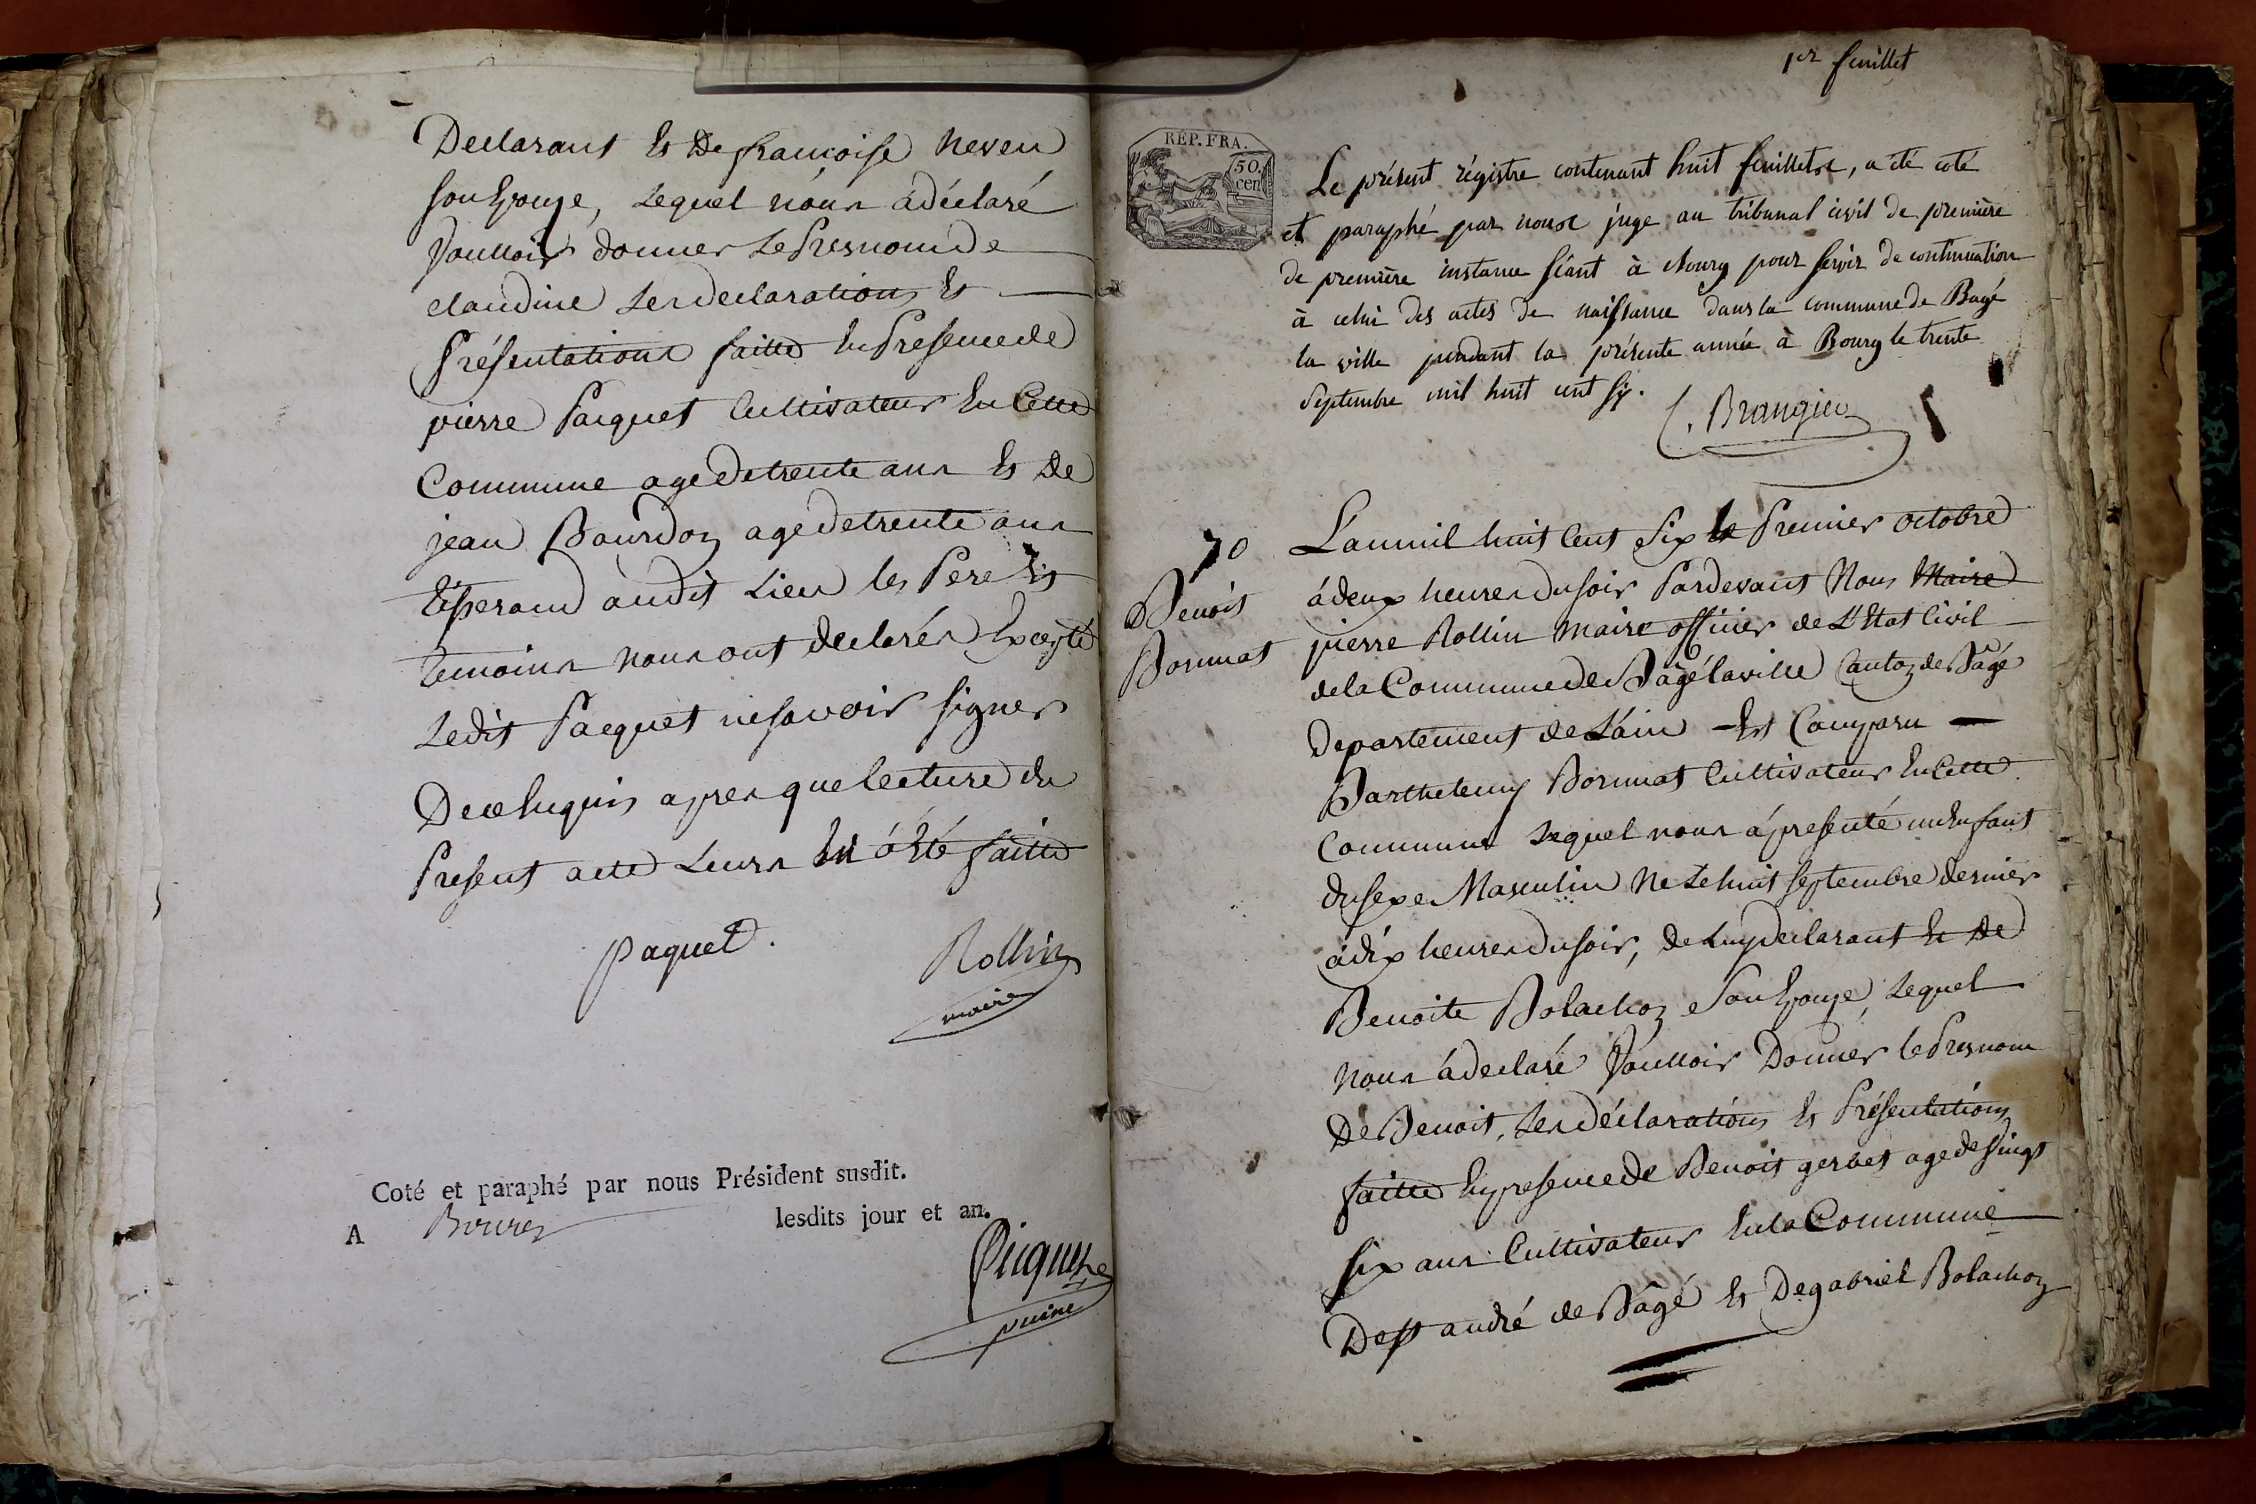 Declarant Et De francoise neveu
son Epouse, Lequel nous a déclaré
Voulloir donner Le Presnom de
claudine Les declarations Et
Présentations faitte En Presence de
pierre Paquet Cultivateur En Cette
Commune age de trente ans Et De
jean Bourdon age de trente ans
tisserand audit Lieu les Pere Et
temoins nous ont declarés Excepté
Ledit Paquet ne savoir signer
De ce Enquis apres que lecture du
Present acte Leurs En a Eté faitte
paquet.
Rollin
maire
Coté et paraphé par nous Président susdit.
A Bourg lesdits jour et an.
Picquet
puiné
1er feuillet
RÉP. FRA.
50.
cen
Le présent régistre contenant huit feuillets, a été coté
et paraphé par nous juge au tribunal civil de première
de première instance séant à Bourg pour servir de continuation
à celui des actes de naissance dans la commune de Bagé
la ville pendant la présente année à Bourg le trente
septembre mil huit cent six.
C. Brangier
70
Benoit
Bornuat
L'an mil huit Cent Six le Premier octobre
á deux heures du soir Pardevant Nous Maire
pierre Rollin Maire officier de L'Etat Civil
de la Commune de Bâgé la ville Canton de Bâgé
Departement de L'ain Est Comparu
Barthelemy Bornuat Cultivateur En Cette
Commune Lequel nous á presenté un Enfant
du sexe Masculin Né Le huit septembre dernier
á dix heures du soir, de Luy declarant Et De
Benoite Bolachon Son Epouse, Lequel
Nous á declaré Voulloir Donner le Presnom
De Benoit, Les déclarations Et Présentations
faitte En presence de Benoit gerbet age de Vingt
six ans Cultivateur En la Commune
De st andré de Bâgé Et De gabriel Bolachon